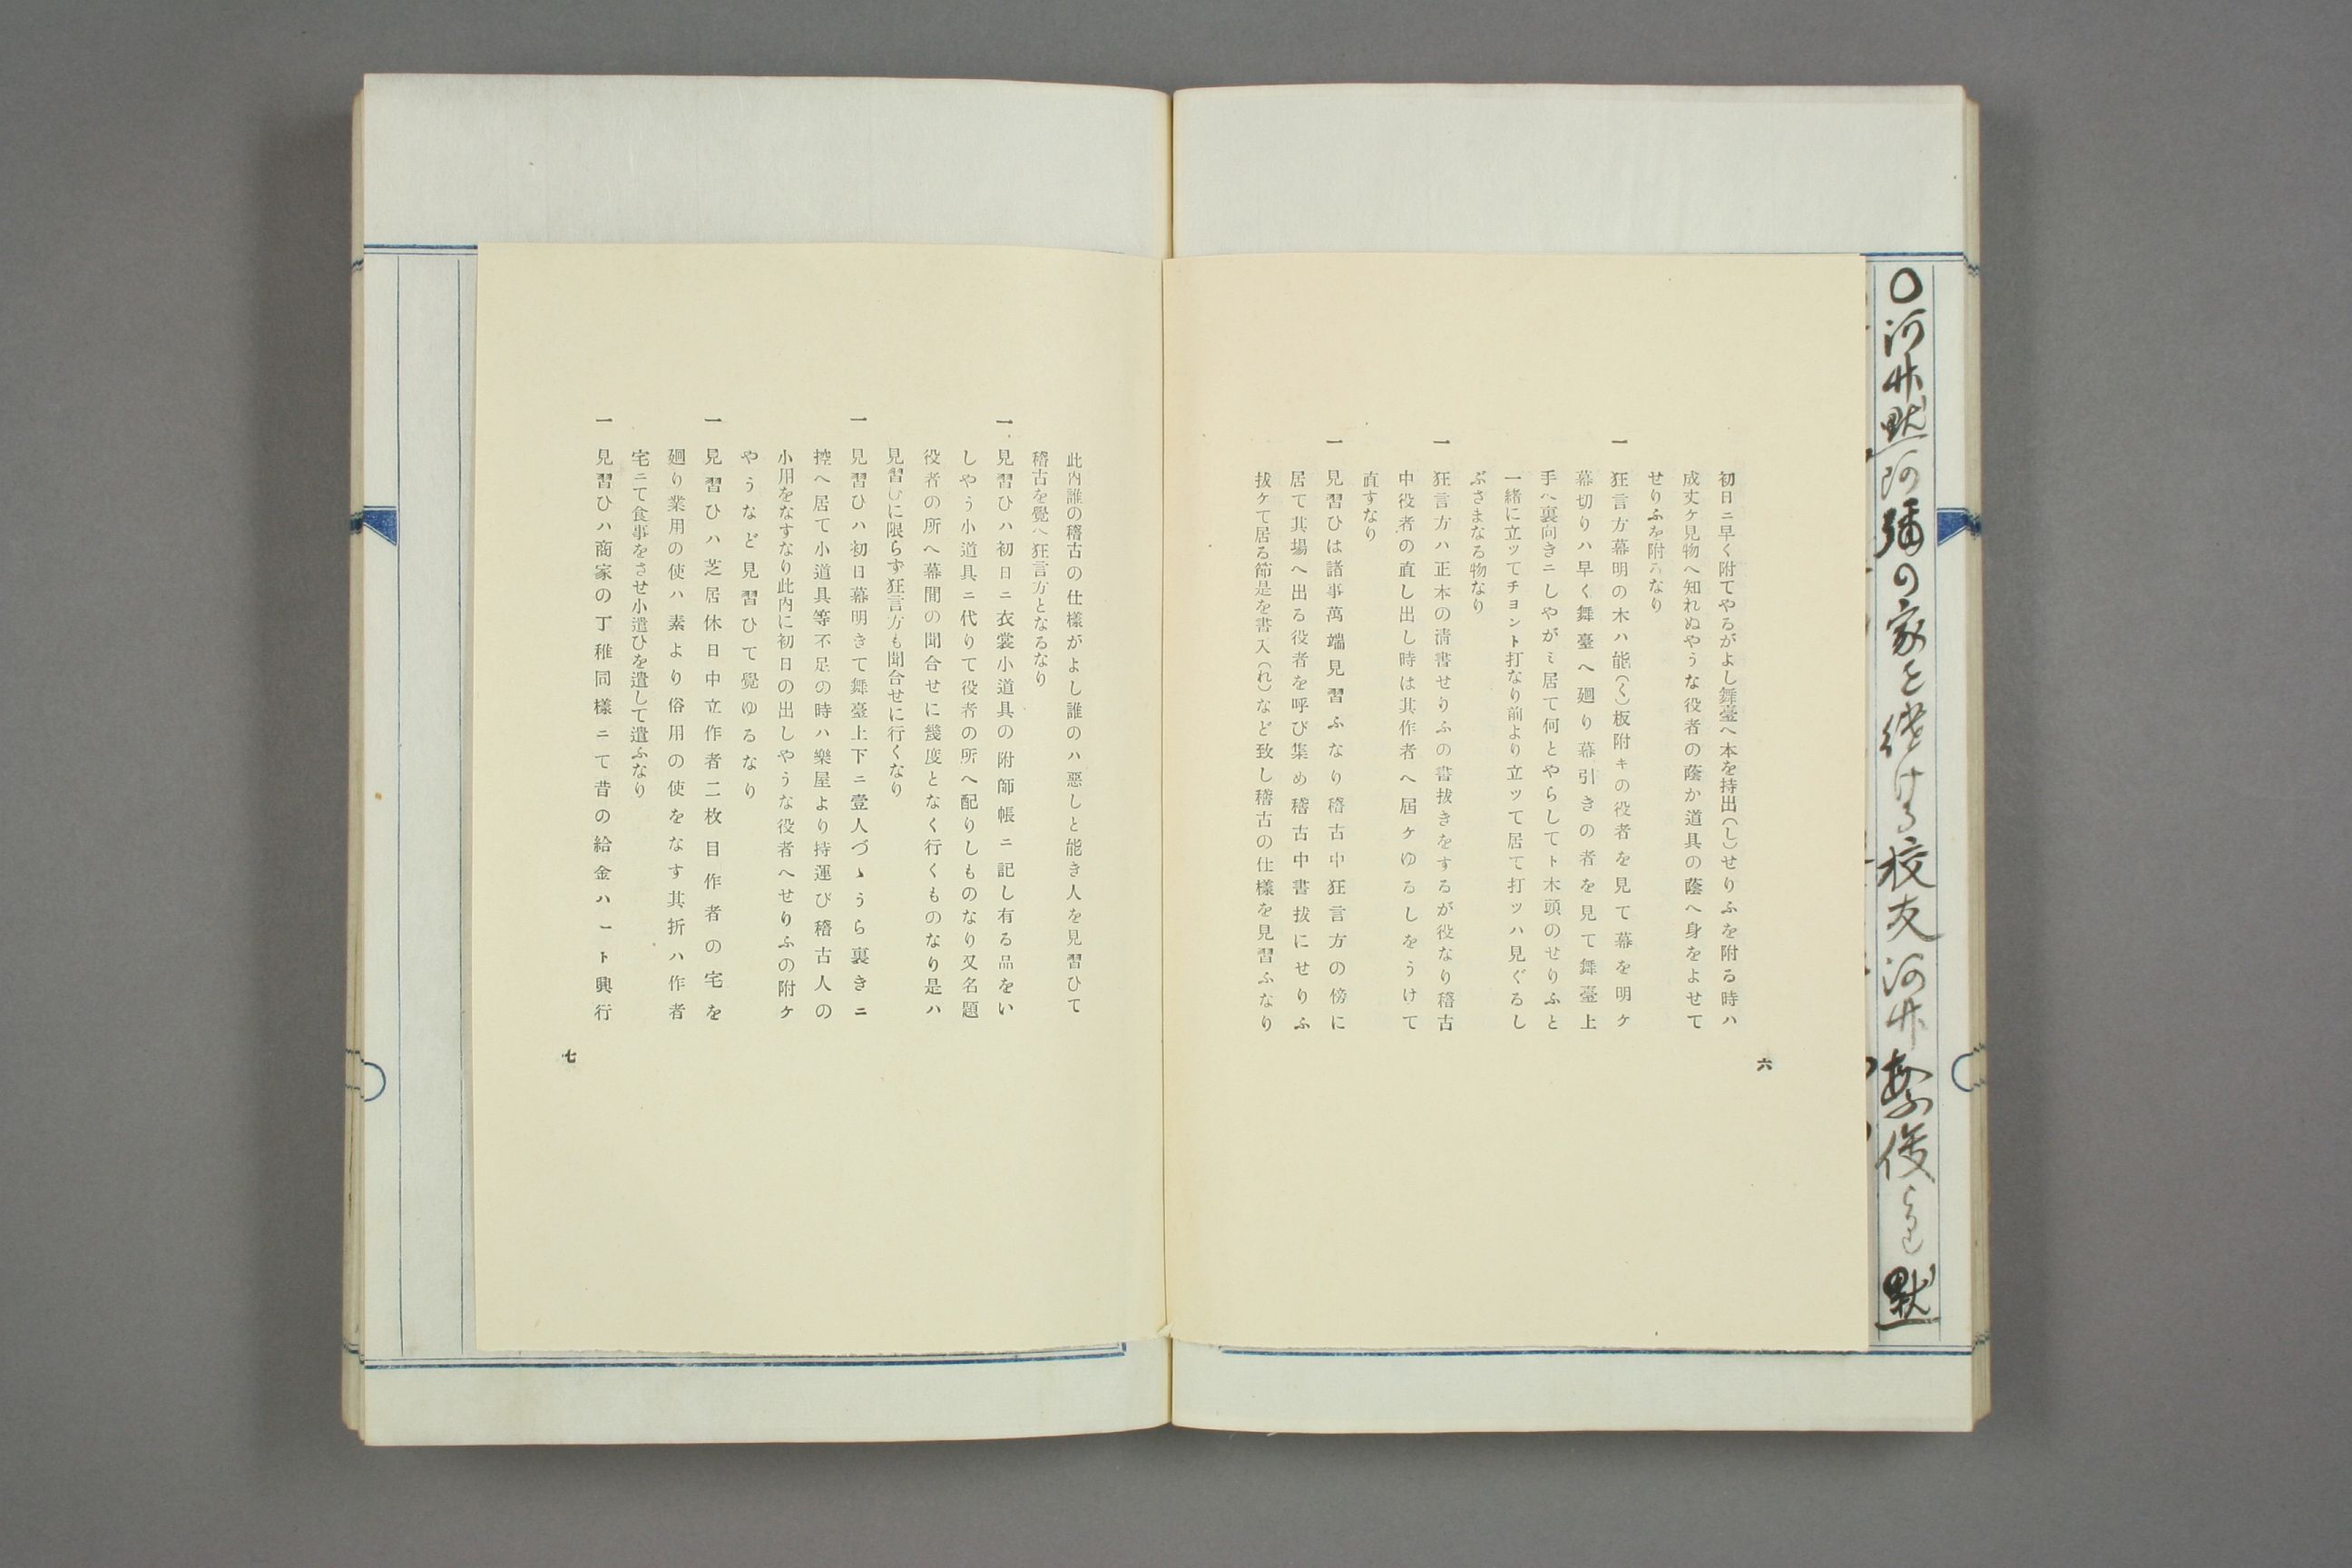 〇河竹黙阿彌の家を継ける校友河竹繁俊
黙
六
初日ニ早く附てやるがよし舞臺へ本を持出(し)せりふを附る時ハ
成丈ケ見物へ知れぬやうな役者の蔭か道具の蔭へ身をよせて
せりふを附るなり
一 狂言方幕明の木ハ能(く)板附キの役者を見て幕を明ケ
幕切りハ早く舞臺へ廻り幕引きの者を見て舞臺上
手へ裏向きニしやがミ居て何とやらしてト木頭のせりふと
一緒に立ッてチヨント打なり前より立ッて居て打ッハ見ぐるし
ぶさまなる物なり
一 狂言方ハ正本の清書せりふの書抜きをするが役なり稽古
中役者の直し出し時は其作者へ屆ケゆるしをうけて
直すなり
一 見習ひは諸事萬端見習ふなり稽古中狂言方の傍に
居て其場へ出る役者を呼び集め稽古中書拔にせりふ
拔ケて居る節是を書入(れ)など致し稽古の仕樣を見習ふなり
此内誰の稽古の仕樣がよし誰のハ惡しと能き人を見習ひて
稽古を覺へ狂言方となるなり
一 見習ひハ初日ニ衣裳小道具の附師帳ニ記し有る品をい
しやう小道具ニ代りて役者の所へ配りしものなり又名題
役者の所へ幕間の聞合せに幾度となく行くものなり是ハ
見習ひに限らず狂言方も聞合せに行くなり
一 見習ひハ初日幕明きて舞臺上下ニ壹人づゝうら裏きニ
控へ居て小道具等不足の時ハ樂屋より持運び稽古人の
小用をなすなり此内に初日の出しやうな役者へせりふの附ケ
やうなど見習ひて覺ゆるなり
一 見習ひハ芝居休日中立作者二枚目作者の宅を
廻り業用の使ハ素より俗用の使をなす其折ハ作者
宅ニて食事をさせ小遣ひを遣して遣ふなり
一 見習ひハ商家の丁稚同樣ニて昔の給金ハ一ト興行
七